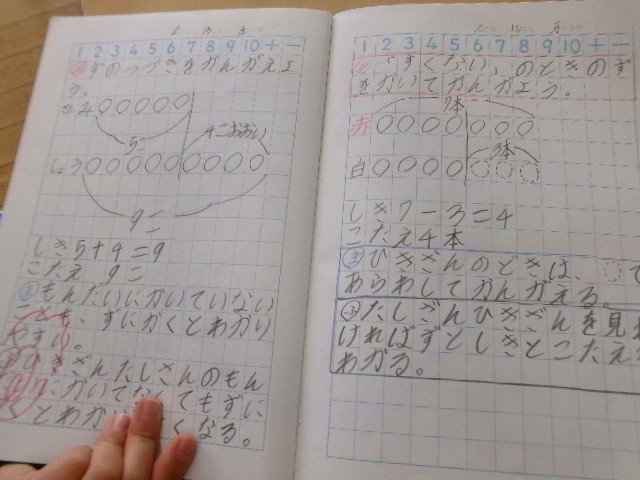 1 2 3 4 5 6 7 8 9 10 + −
ずのつづきをかんがえよ
う。
5こ
4こおおい
9こ
しき5+9=9
こたえ 9こ
もんだいにかいていない
ことも、ずにかくとわかり
やすい。
ひきざんたしざんのもん
にかいてなくてもずに
くとわか くなる。
1 2 3 4 5 6 7 8 9 10 + −
「すくない」のときのず
をかいてかんがよう。
7本
赤
3本
白
しき7−3=4
こたえ4本
ま ひきざんのときは、 で
あらわしてかんがえる。
たしざんひきざんを見
ければずとしきとこたえ
わかる。